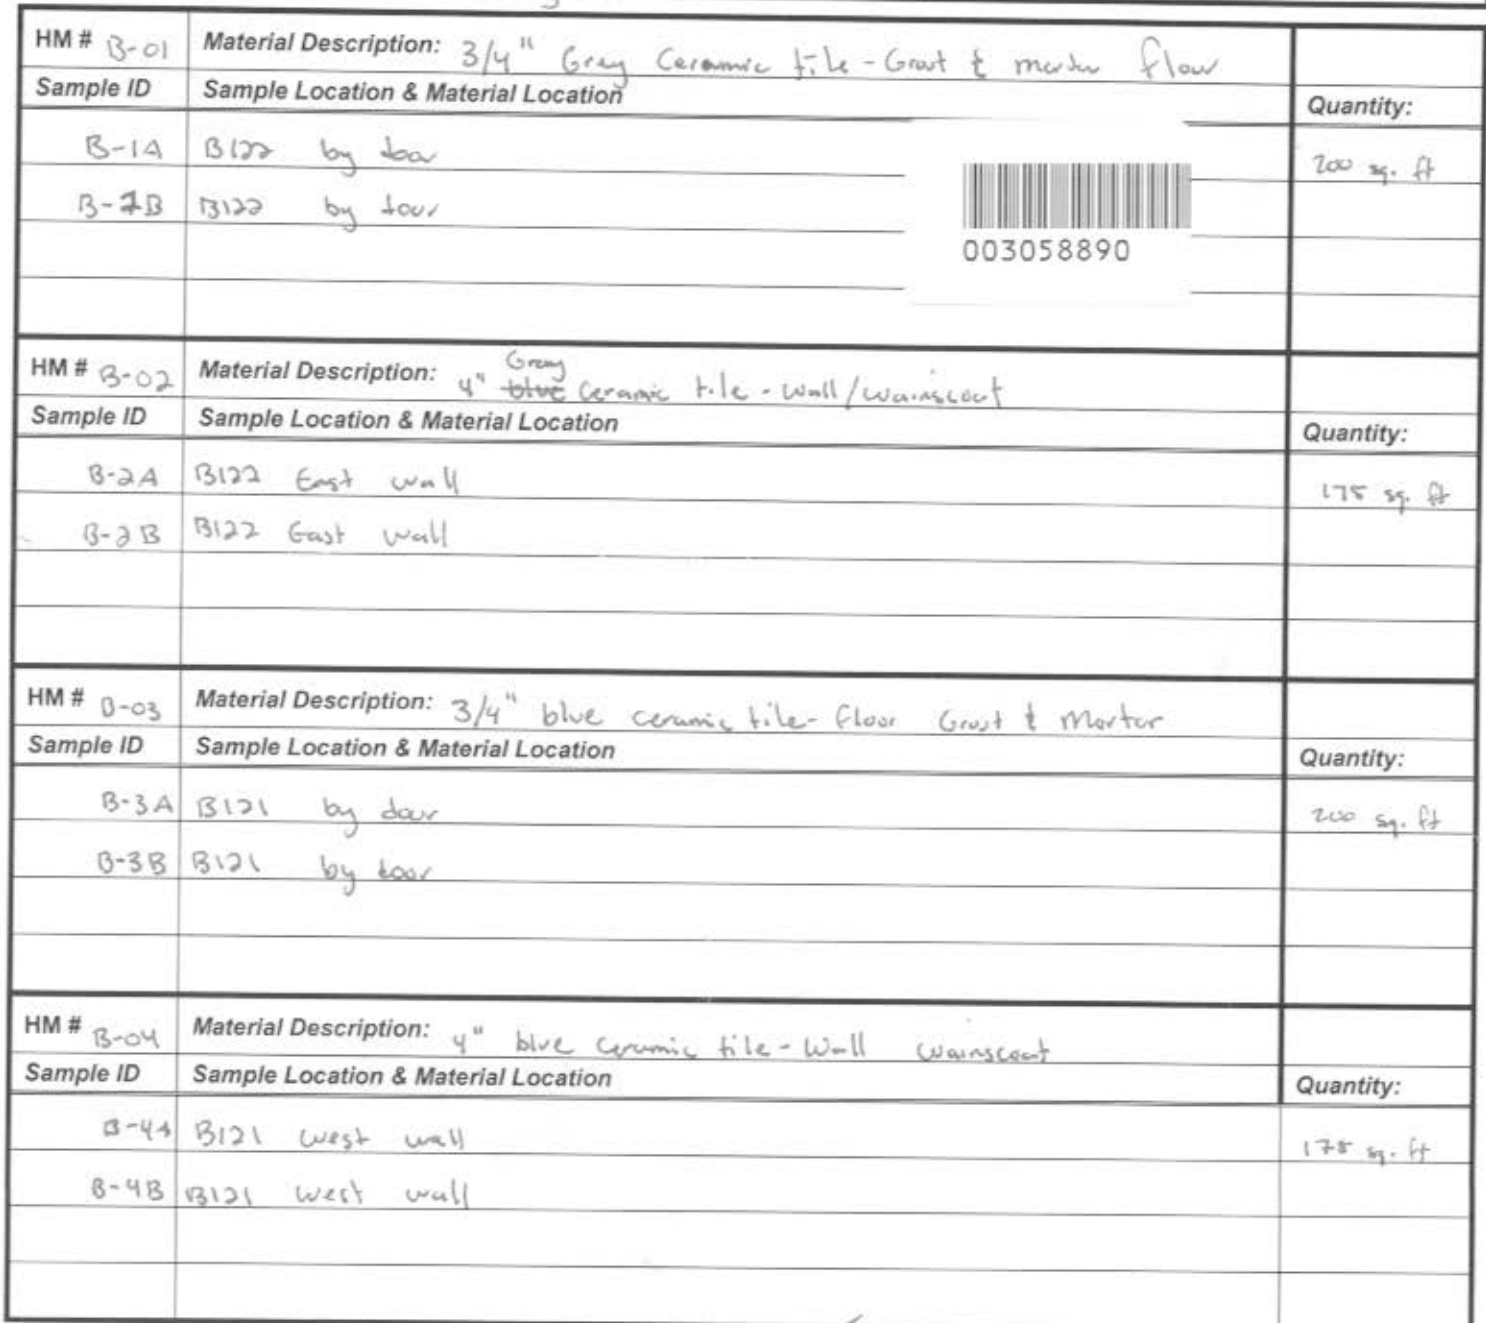 HM # B-01 Material Description: 3/4" Grey Ceramic tile - Grout & mortar floor
Sample ID Sample Location & Material Location Quantity:
B-1A B122 by door 200 sq. ft
B-1B B122 by door
003058890
HM # B-02 Material Description: 4" Grey blue ceramic tile - Wall/wainscoat
Sample ID Sample Location & Material Location Quantity:
B-2A B122 East wall 175 sq. ft
B-2B B122 East wall
HM # B-03 Material Description: 3/4" blue ceramic tile - floor Grout & Mortar
Sample ID Sample Location & Material Location Quantity:
B-3A B121 by door 200 sq. ft
B-3B B121 by door
HM # B-04 Material Description: 4" blue ceramic tile - Wall wainscoat
Sample ID Sample Location & Material Location Quantity:
B-4A B121 west wall 175 sq. ft
B-4B B121 west wall